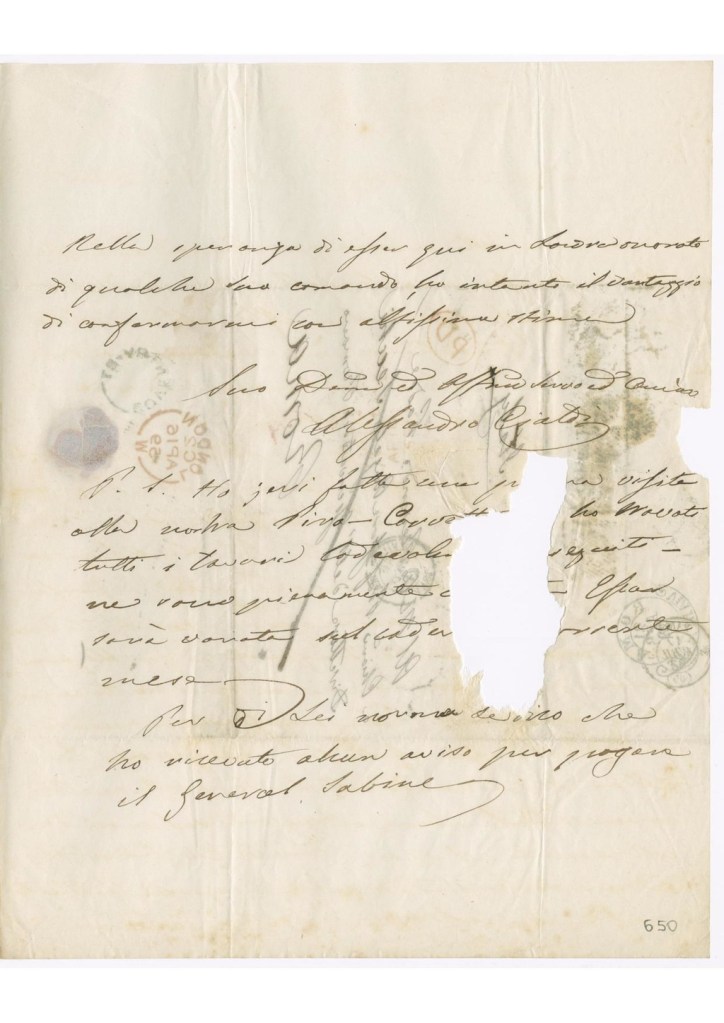 Nella speranza di esser qui in Londra onorato
di qualche suo comando, ho intanto il vantaggio
di confermarmi con altissima stima
Suo Devmo ed Affmo Servo ed Amico
Alessandro Cialdi
P. S. Ho jeri fatta una visita
alla nostra Piro-Corvetta ho trovato
tutti i lavori
ne sono pienamente Essa
sarà varata sul cader corrente
mese
Per di Lei norma le dico che
ho ricevuto alcun aviso per pagare
il General Sabine
650